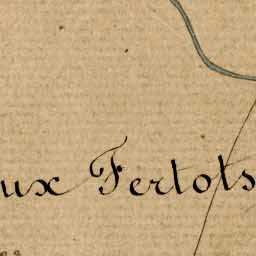 ux Fertots